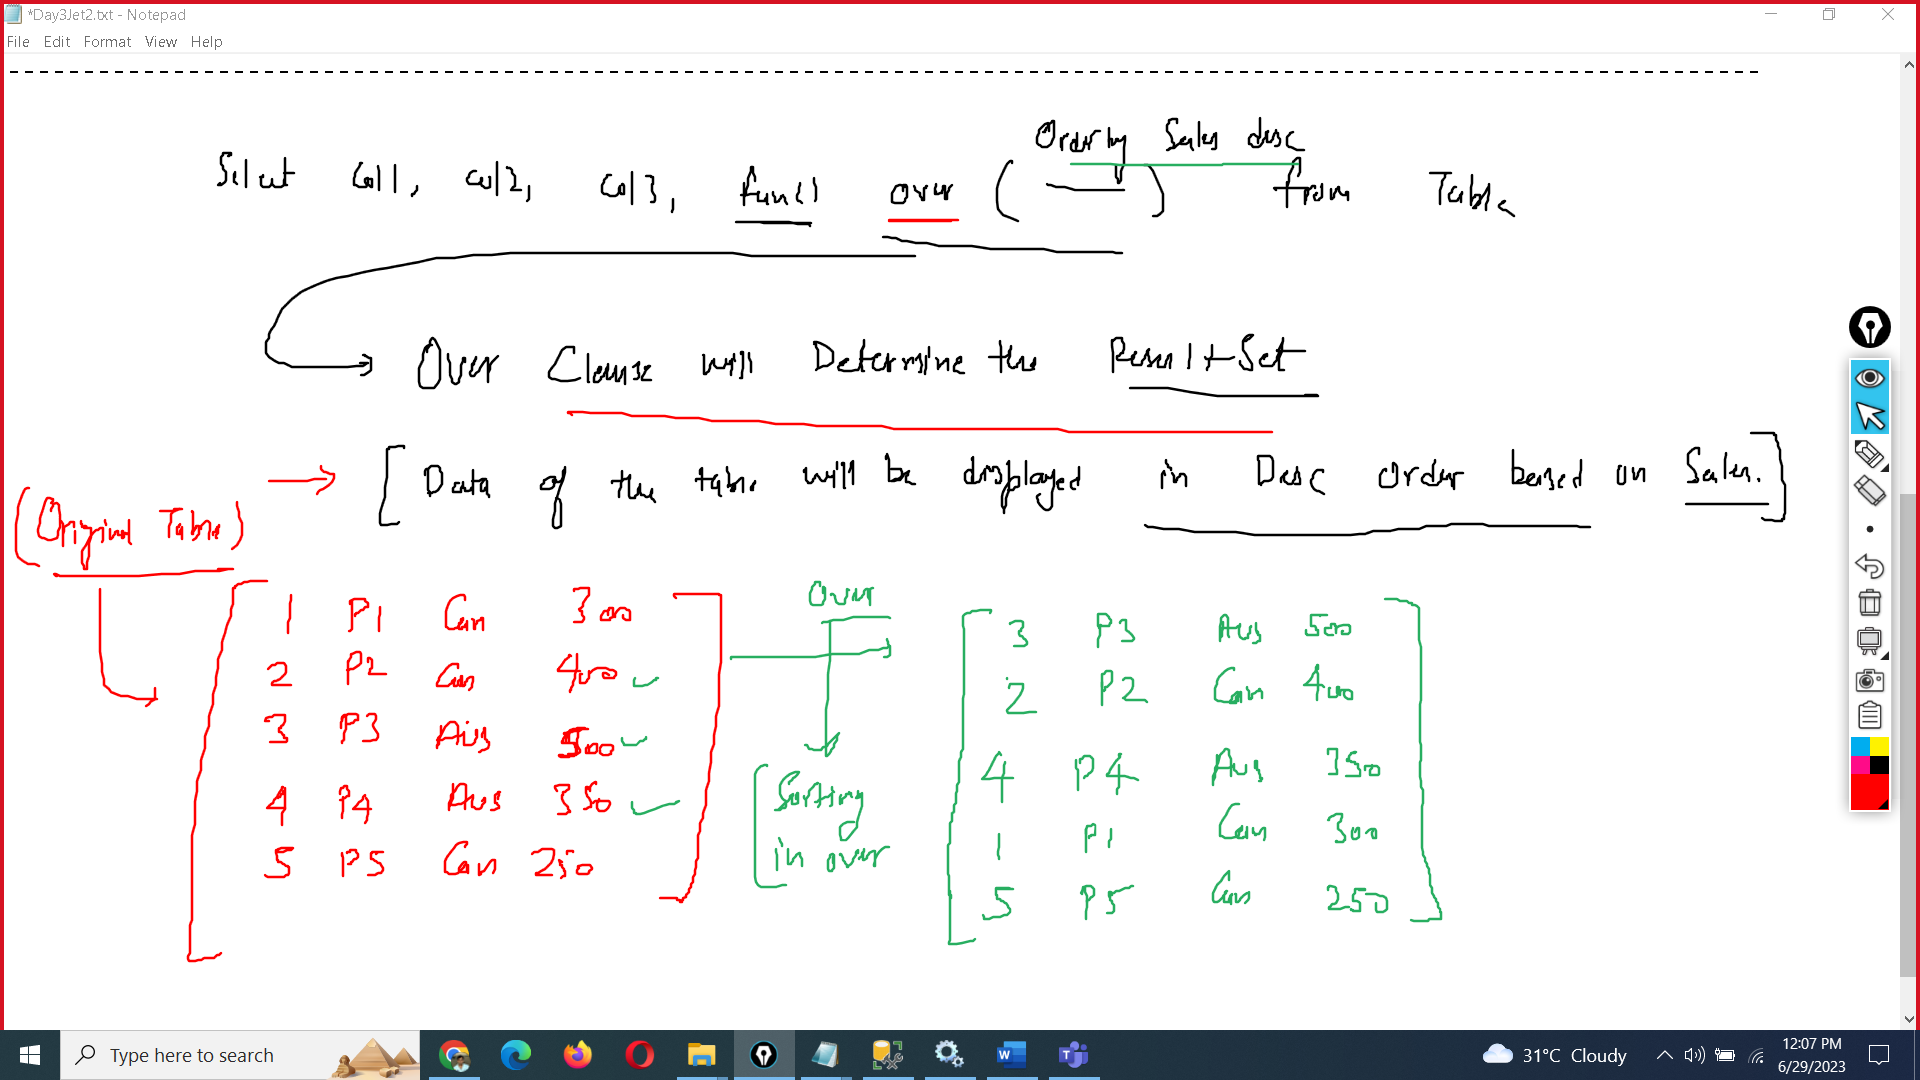 *Day3Jet2.txt - Notepad
File Edit Format View Help
Order by Sales desc
Select Col1, col2, Col3, func() over ( ) from Table
Over Clause will Determine the Result Set
[Data of the table will be displayed in Desc order based on Sales.]
(Original Table)
1 P1 Can 300
2 P2 Can 400
3 P3 Aus 500
4 P4 Aus 350
5 P5 Can 250
Over
Sorting
in over
3 P3 Aus 500
2 P2 Can 400
4 P4 Aus 350
1 P1 Can 300
5 P5 Can 250
Type here to search
31°C Cloudy
12:07 PM
6/29/2023